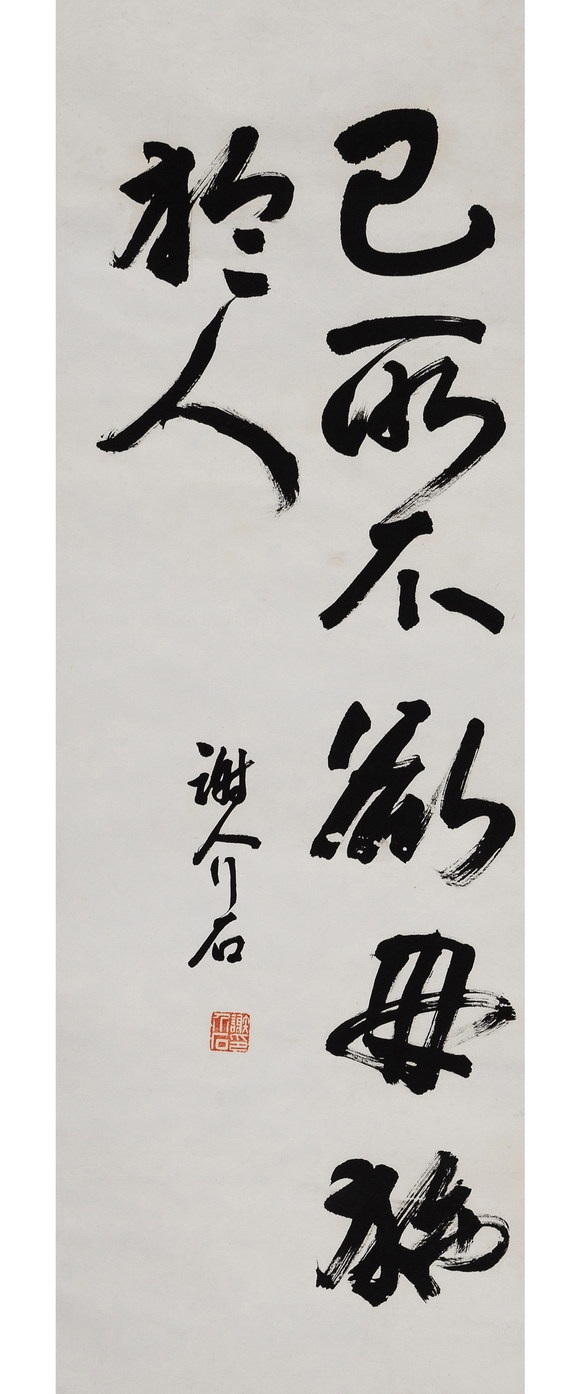 己所不欲毋施
於人
謝介石
謝介石印